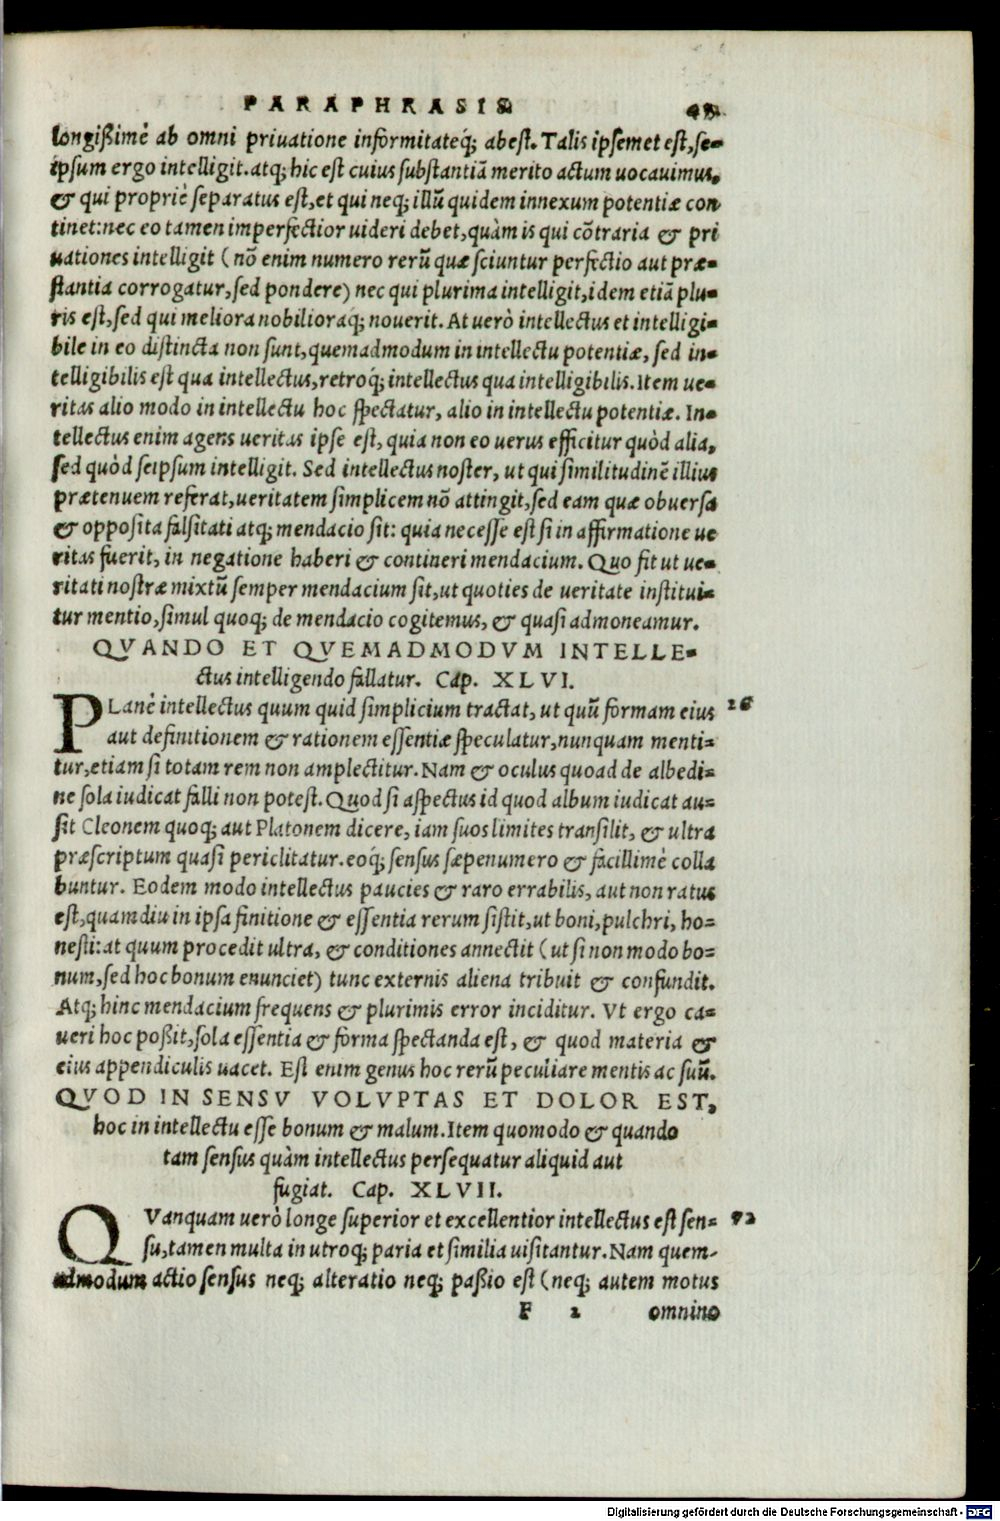 PARAPHRASIS
longißimè ab omni priuatione informitateq́; abest. Talis ipsemet est, se-
ipsum ergo intelligit. atq; hic est cuius substantiã merito actum uocauimus,
& qui propriè separatus est, et qui neq; illũ quidem innexum potentiæ con
tinet: nec eo tamen imperfectior uideri debet, quàm is qui cõtraria & pri
uationes intelligit (nõ enim numero rerũ quæ sciuntur perfectio aut præ-
stantia corrogatur, sed pondere) nec qui plurima intelligit, idem etiã plu-
ris est, sed qui meliora nobilioraq́; nouerit. At uerò intellectus et intelligi-
bile in eo distincta non sunt, quemadmodum in intellectu potentiæ, sed in-
telligibilis est qua intellectus, retroq́; intellectus qua intelligibilis. Item ue-
ritas alio modo in intellectu hoc spectatur, alio in intellectu potentiæ. In-
tellectus enim agens ueritas ipse est, quia non eo uerus efficitur quòd alia,
sed quòd seipsum intelligit. Sed intellectus noster, ut qui similitudinẽ illius
prætenuem referat, ueritatem simplicem nõ attingit, sed eam quæ obuersa
& opposita falsitati atq; mendacio sit: quia necesse est si in affirmatione ue
ritas fuerit, in negatione haberi & contineri mendacium. Quo fit ut ue-
ritati nostræ mixtũ semper mendacium sit, ut quoties de ueritate institui-
tur mentio, simul quoq; de mendacio cogitemus, & quasi admoneamur.
QVANDO ET QVEMADMODVM INTELLE-
ctus intelligendo fallatur. Cap. XLVI.
PLanè intellectus quum quid simplicium tractat, ut quũ formam eius 26
aut definitionem & rationem essentiæ speculatur, nunquam menti-
tur, etiam si totam rem non amplectitur. Nam & oculus quoad de albedi-
ne sola iudicat falli non potest. Quod si aspectus id quod album iudicat au-
sit Cleonem quoq; aut Platonem dicere, iam suos limites transilit, & ultra
præscriptum quasi periclitatur. eoq́; sensus sæpenumero & facillimè colla
buntur. Eodem modo intellectus paucies & raro errabilis, aut non ratus
est, quamdiu in ipsa finitione & essentia rerum sistit, ut boni, pulchri, ho-
nesti: at quum procedit ultra, & conditiones annectit (ut si non modo bo-
num, sed hoc bonum enunciet) tunc externis aliena tribuit & confundit.
Atq; hinc mendacium frequens & plurimis error inciditur. Vt ergo ca-
ueri hoc poßit, sola essentia & forma spectanda est, & quod materia &
eius appendiculis uacet. Est enim genus hoc rerũ peculiare mentis ac suũ.
QVOD IN SENSV VOLVPTAS ET DOLOR EST,
hoc in intellectu esse bonum & malum. Item quomodo & quando
tam sensus quàm intellectus persequatur aliquid aut
fugiat. Cap. XLVII.
QVanquam uerò longe superior et excellentior intellectus est sen-
su, tamen multa in utroq; paria et similia uisitantur. Nam quem-
admodum actio sensus neq; alteratio neq; paßio est (neq; autem motus
F 2 omnino
Digitalisierung gefördert durch die Deutsche Forschungsgemeinschaft - DFG